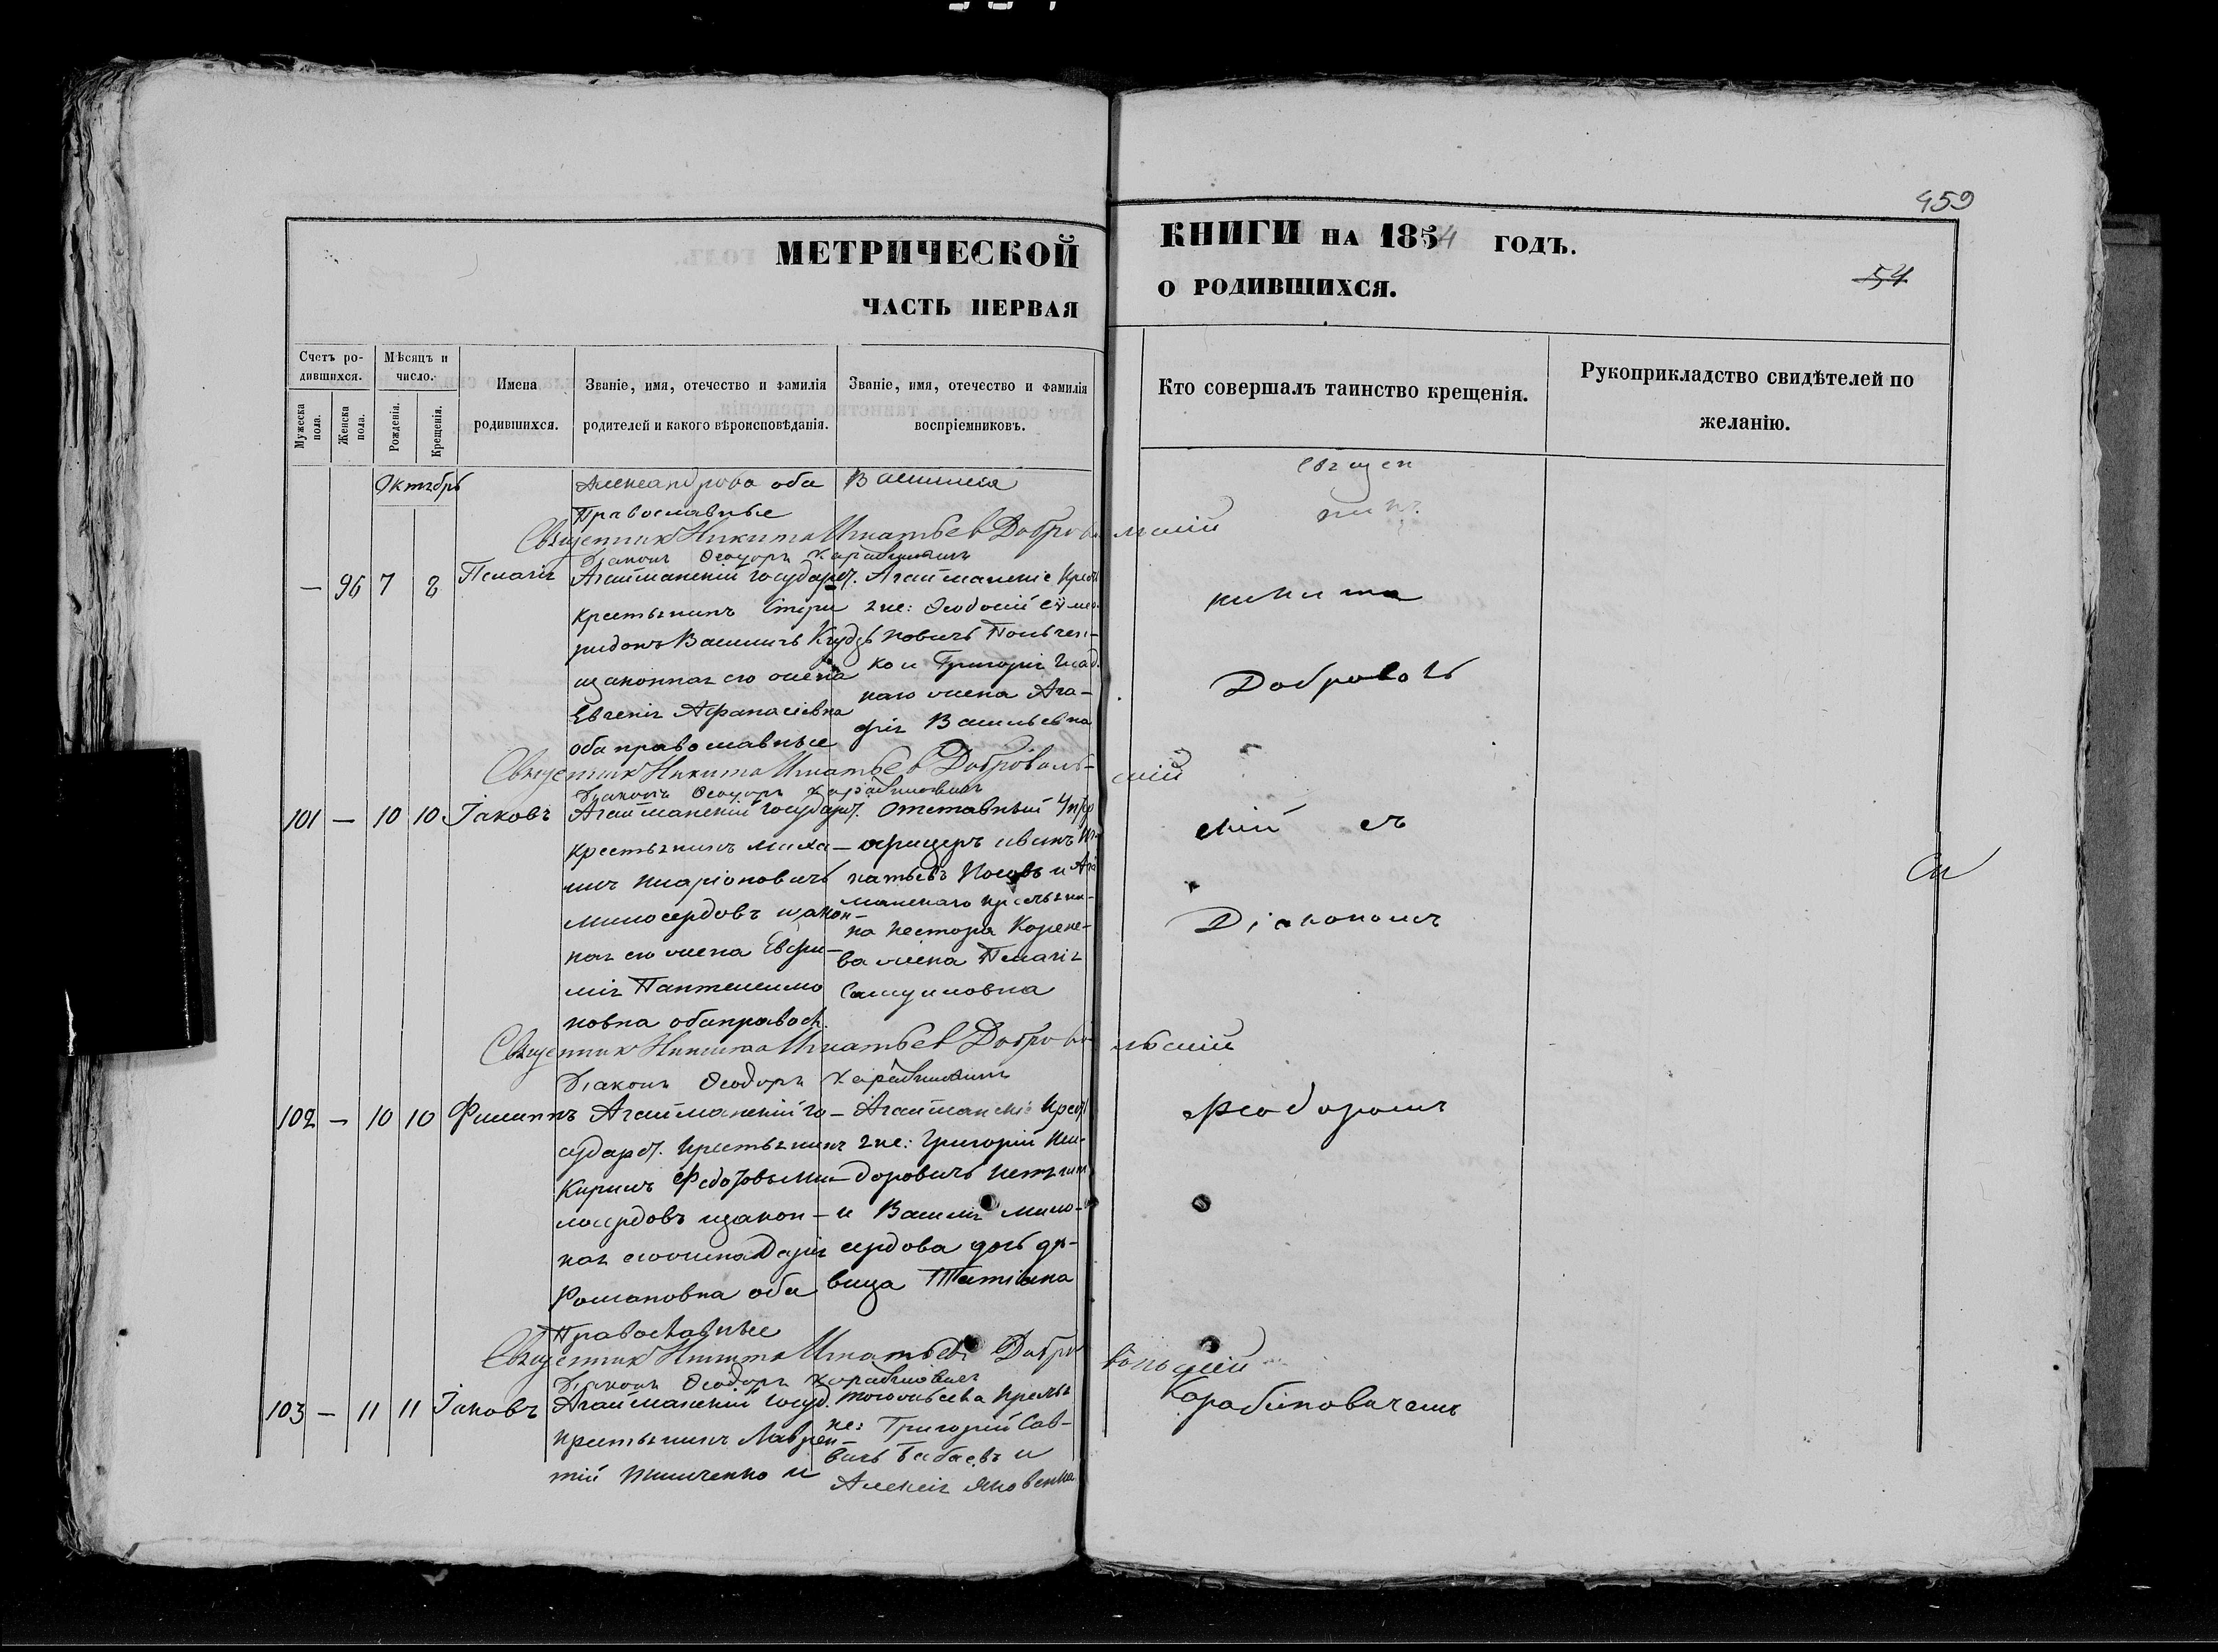 459
МЕТРИЧЕСКОЙ КНИГИ НА 1854 ГОДЪ.
ЧАСТЬ ПЕРВАЯ О РОДИВШИХСЯ.
54
Счетъ ро-
дившихся.
Мужеска пола.
Женска пола.
Мѣсяцъ и
число.
Рожденія.
Крещенія.
Имена
родившихся.
Званіе, имя, отечество и фамилія
родителей и какого вѣроисповѣданія.
Званіе, имя, отечество и фамилія
воспріемниковъ.
Кто совершалъ таинство крещенія.
Рукоприкладство свидѣтелей по
желанію.
Октябрь
Александрова оба
Православные
Священник Никита Игнатьев Добровольский
Діаконъ Ѳеодоръ Карабиновичъ
— 96 7 8 Пелагія
Агайманскій государст.
Крестьянинъ Спири
ридонъ
изаконная его жена
Евгенія Афанасіевна
оба православные
Агайманскіе Крест
яне: Ѳеодосій
ко и Григорія Глад
каго жена Ага-
фія Васильевна
Священник Никита Игнатьев Добровольский
Діаконъ Ѳеодоръ Карабиновичъ
101 — 10 10 Іаковъ
Агайманскій государст.
Крестьянинъ Миха-
илъ Иларіоновичъ
Милосердовъ изакон-
ная его жена Евфи-
мія Пантелимо
новна оба правосл.
Отставный Унтер
офицеръ иванъ Иг
натьевъ Носовъ и Ага
манскаго крестьяни-
на Нестора Корене-
ва жена Пелагія
Самуиловна
Священник Никита Игнатьев Добровольский
Діаконъ Ѳеодоръ Карабиновичъ
102 — 10 10 Филиппъ
Агайманскій го-
сударст. крестьянинъ
Кирилъ Федотовъ Ми-
лосердовъ изакон-
ная его жена Дарія
Романовна оба
Православные
Агайманскіе Крест
яне: Григорій
и Василія Мило-
сердова дочь дѣ-
вица Татіана
Священник Никита Игнатьевъ Добровольский
Діаконъ Ѳеодоръ Карабиновичъ
103 — 11 11 Іаковъ
Агайманскій госуд.
крестьянинъ Лаврен-
тій Тимченко и
того ольсела крестья
не: Григорій Сав-
вичъ Бабаевъ и
Алексія Яковенка
Священ
никъ
никита
Доброволь
скій съ
Діакономъ
Ѳеодоромъ
Карабиновичемъ